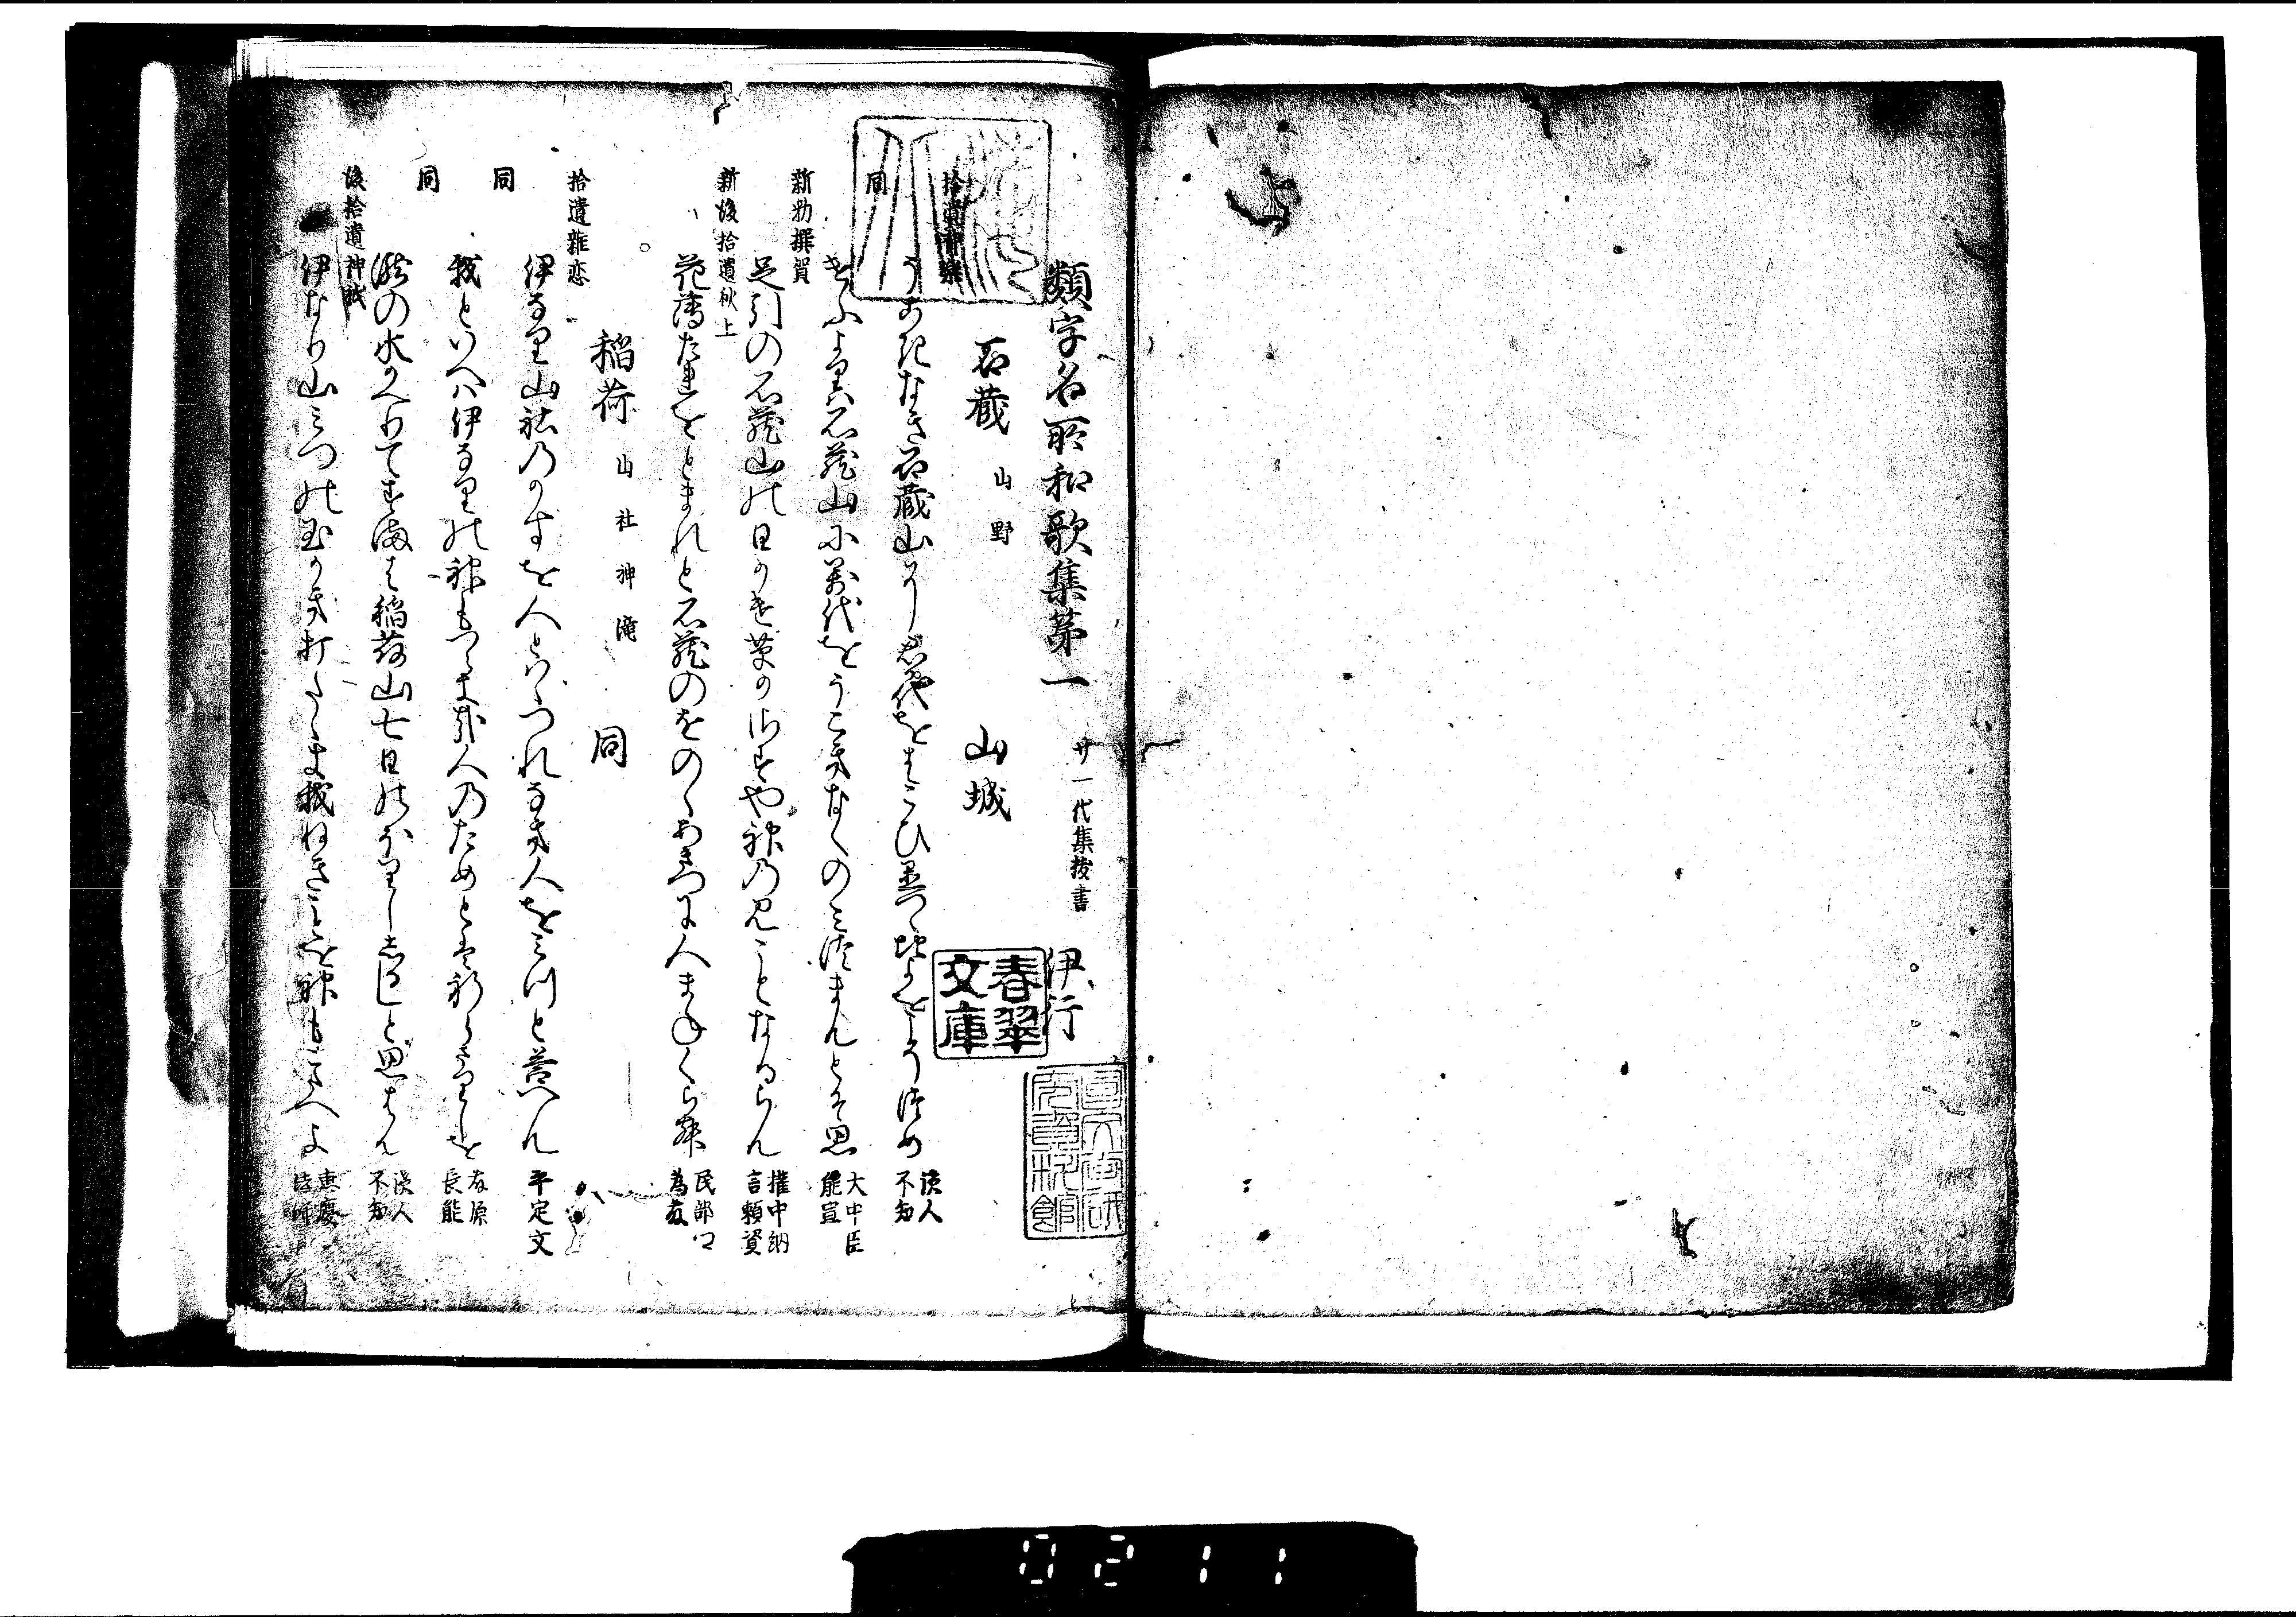 類字名所和歌集第一 廿一代集抜書 伊行
石蔵 山野 山城
拾遺神楽
うこきなき石蔵山にし君か代をはこひ置つゝ地よをこそつめ 読人不知
同
けふよりは石蔵山に万代をうこきなくのみつまんとそ思 大中臣能宣
新勅撰賀
足引の石蔵山の日かけ草かさすや神のみことなるらん 権中納言頼資
新後拾遺秋上
花薄たれをとまれと石蔵のをのゝあきつに人まねくらん 民部卿為藤
稲荷 山社神滝 同
拾遺雑恋
伊なり山社のかすを人とはゝつれなき人をみつと答へん 平定文
同
我といへは伊なりの神もつらき哉人のためとは祈らさりしを 藤原長能
同
滝の水かへりてすまは稲荷山七日のほりししるしと思はん 読人不知
後拾遺神祇
伊なり山みつの玉かき打たゝき我ねきことを神もこたへよ 恵慶法師
春翠文庫
0211